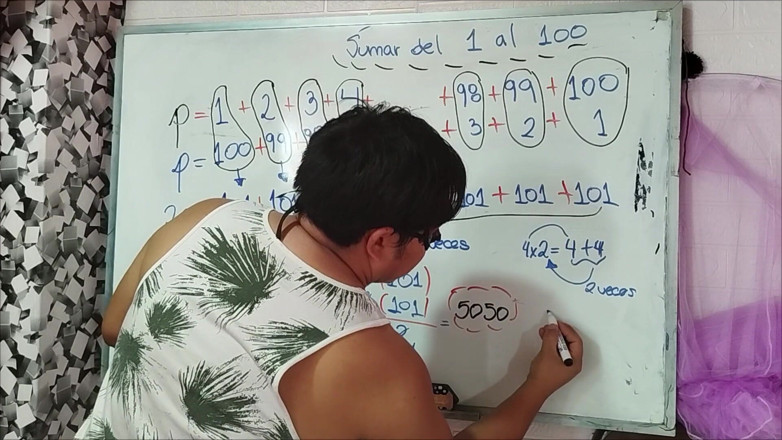 Sumar del 1 al 100
p = 1 + 2 + 3 + 4 + + 98 + 99 + 100
p = 100 + 99 + 3 + 2 + 1
101 + 101 + 101
veces 4x2 = 4 + 4
2 veces
(101)
(101) = 5050
2